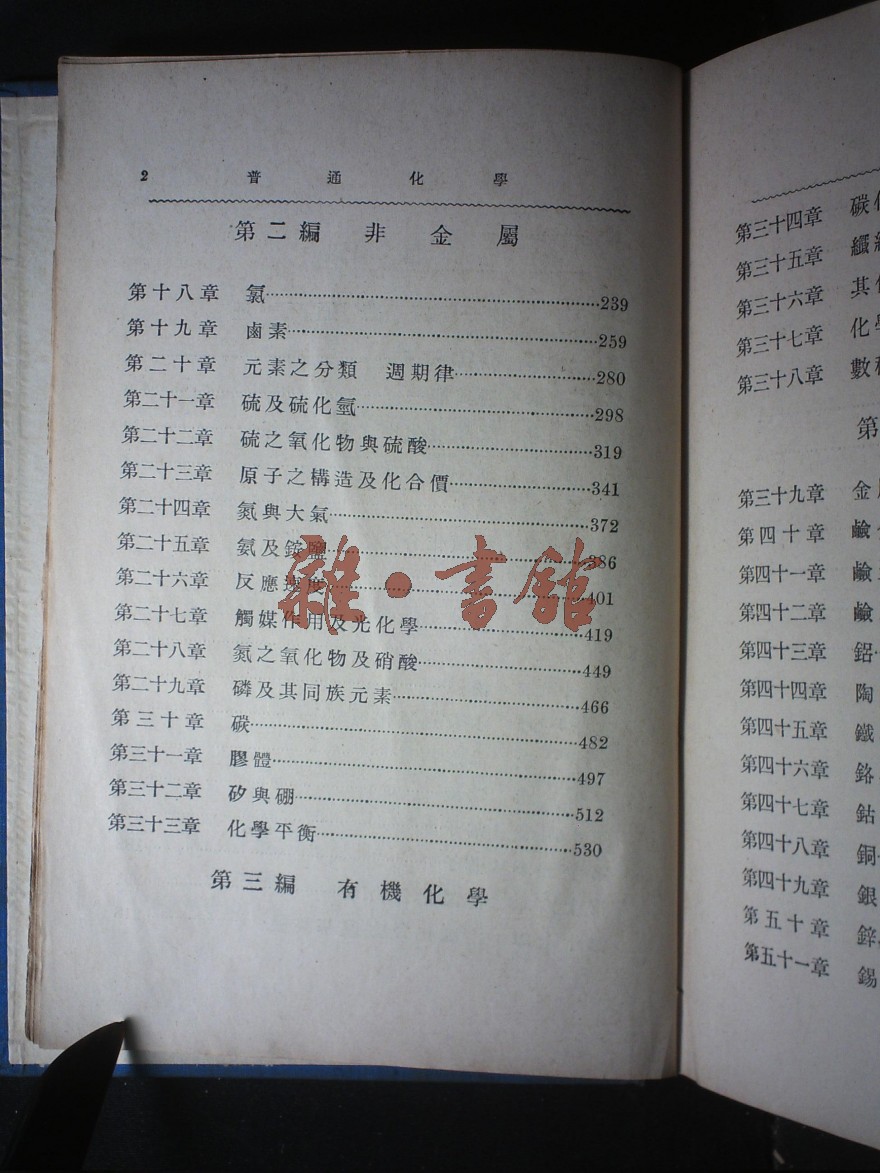 2 普通化學
第二編 非金屬
第十八章 氯……239
第十九章 鹵素……259
第二十章 元素之分類 週期律……280
第二十一章 硫及硫化氫……298
第二十二章 硫之氧化物與硫酸……319
第二十三章 原子之構造及化合價……341
第二十四章 氮與大氣……372
第二十五章 氨及銨鹽……386
第二十六章 反應速度……401
第二十七章 觸媒作用及光化學……419
第二十八章 氮之氧化物及硝酸……449
第二十九章 磷及其同族元素……466
第三十章 碳……482
第三十一章 膠體……497
第三十二章 矽與硼……512
第三十三章 化學平衡……530
第三編 有機化學
雜·書館
第三十四章 碳
第三十五章 纖
第三十六章 其
第三十七章 化
第三十八章 數
第
第三十九章 金
第四十章 鹼
第四十一章 鹼
第四十二章 鹼
第四十三章 鋁
第四十四章 陶
第四十五章 鐵
第四十六章 鉻
第四十七章 鈷
第四十八章 銅
第四十九章 銀
第五十章 鋅
第五十一章 錫